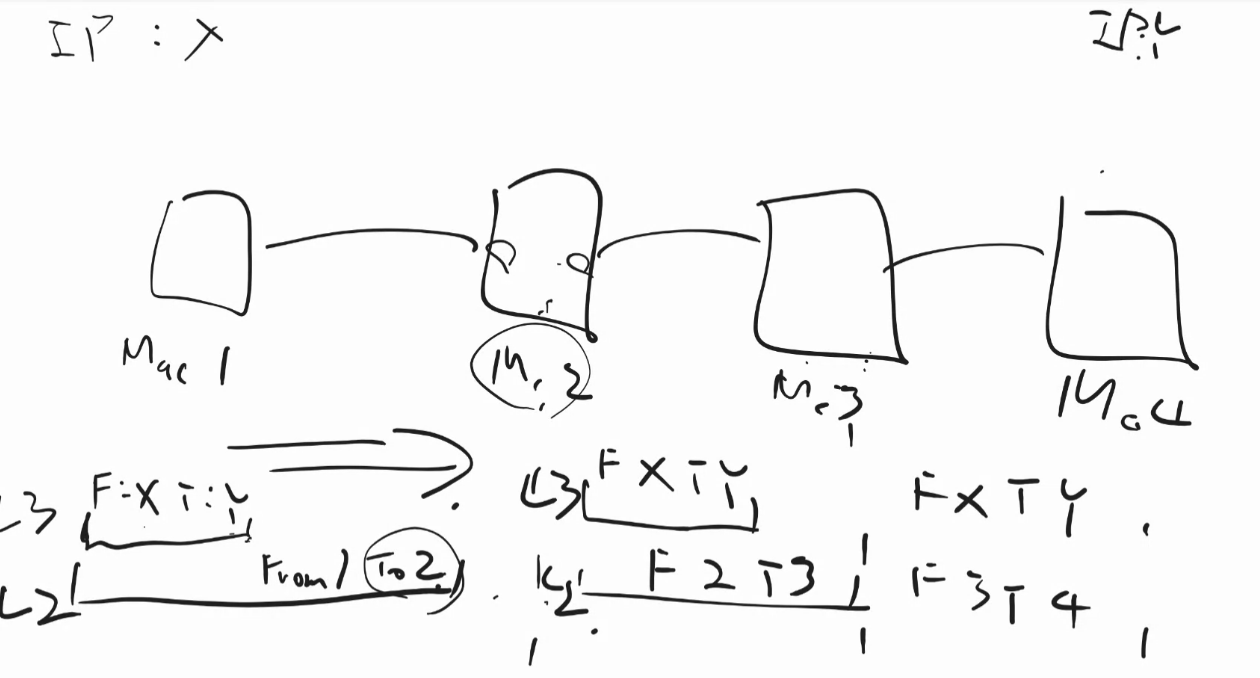 IP : X
IP: Y
Mac 1
Mac 2
Mac 3
Mac 4
L3 F:X T:Y
L2 From 1 To 2
L3 F X T Y
L2 F 2 T 3
F X T Y
F 3 T 4